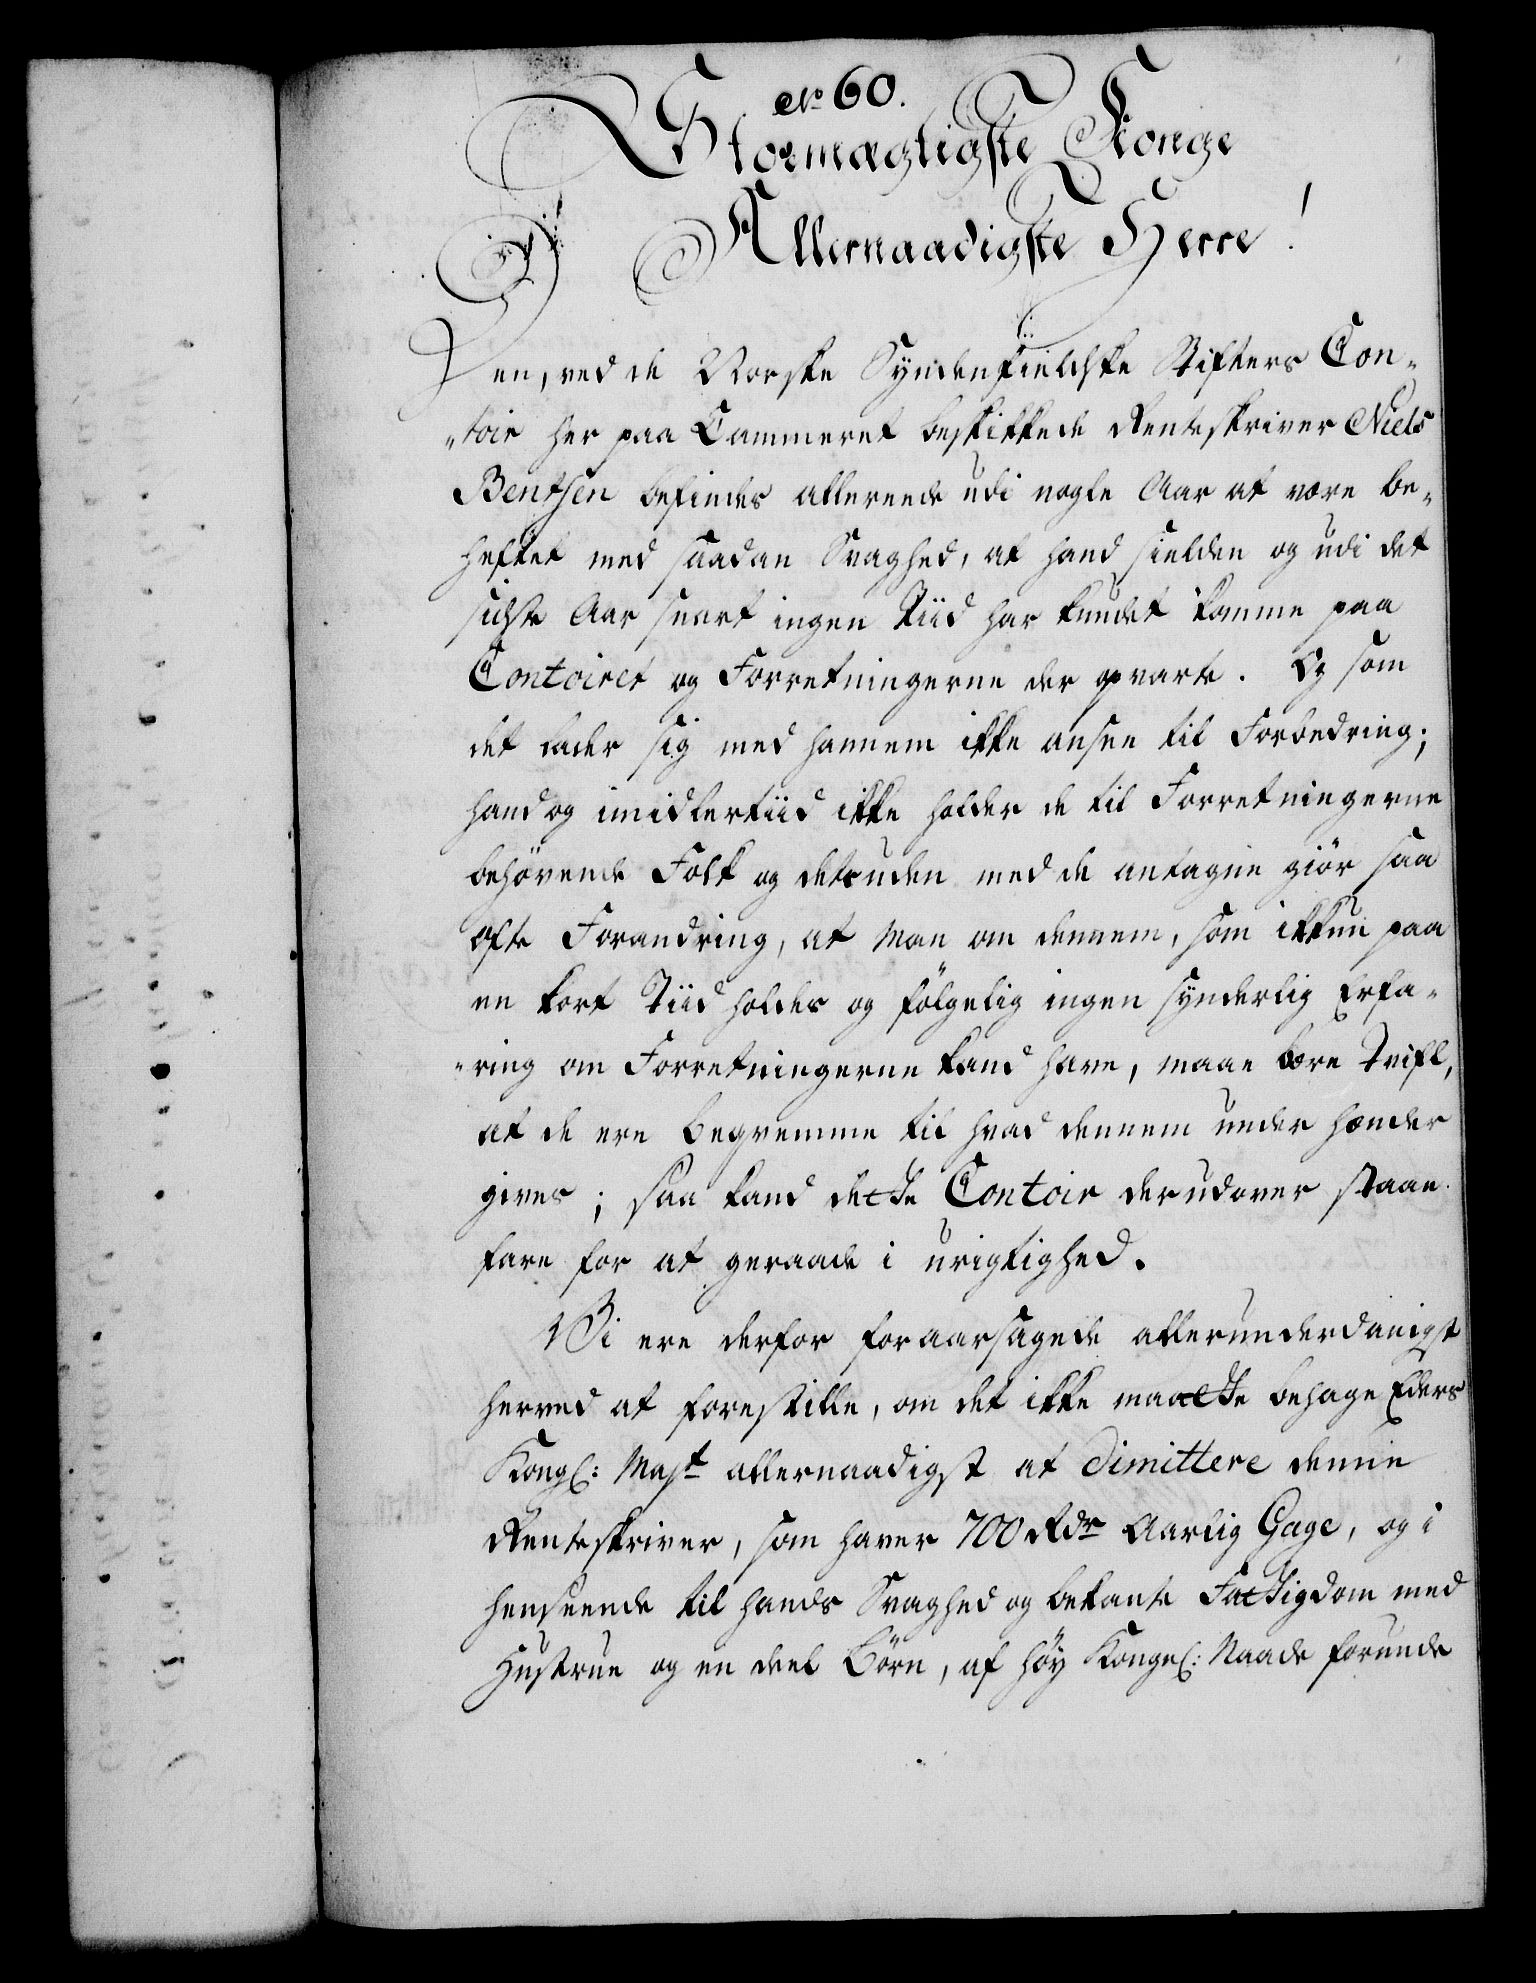 No 60.
Stormægtigste Konge
Allernaadigste Herre!
Den, ved de Norske Syndenfieldske Stifters Con-
"toir her paa Cammeret beskikkede Renteskriver Niels
Bentsen befindes allereede udi nogle Aar at være be-
heftet med saadan Svaghed, at hand sielden og udi det
sidste Aar snart ingen Tiid har kundet komme paa
Contoiret og Forretningerne der qvarte. Og som
det lader sig med hannem ikke ansee til Forbedring;
hand og imidlertiid ikke holder de til Forretningerne
behövende Folk og detsuden med de antagne giör saa
ofte Forandring, at Man om dennem, som ikkun paa
en kort Tiid holdes og fölgelig ingen synderlig Erfa-
"ring om Forretningerne kand have, maae bære Tvifl,
at de ere beqvemme til hvad dennem under hænder
gives; saa kand dette Contoir derudover staae
fare for at geraade i urigtighed.
Vi ere derfor foraarsagede allerunderdanigst
herved at forestille, om det ikke maatte behage Eders
Kongl: Mayt allernaadigst at dimittere denne
Renteskriver, som haver 700 Rdr Aarlig Gage, og i
henseende til hands Svaghed og bekante Fattigdom med
Hustrue og en deel Börn, af höy Kongel: Naade forunde